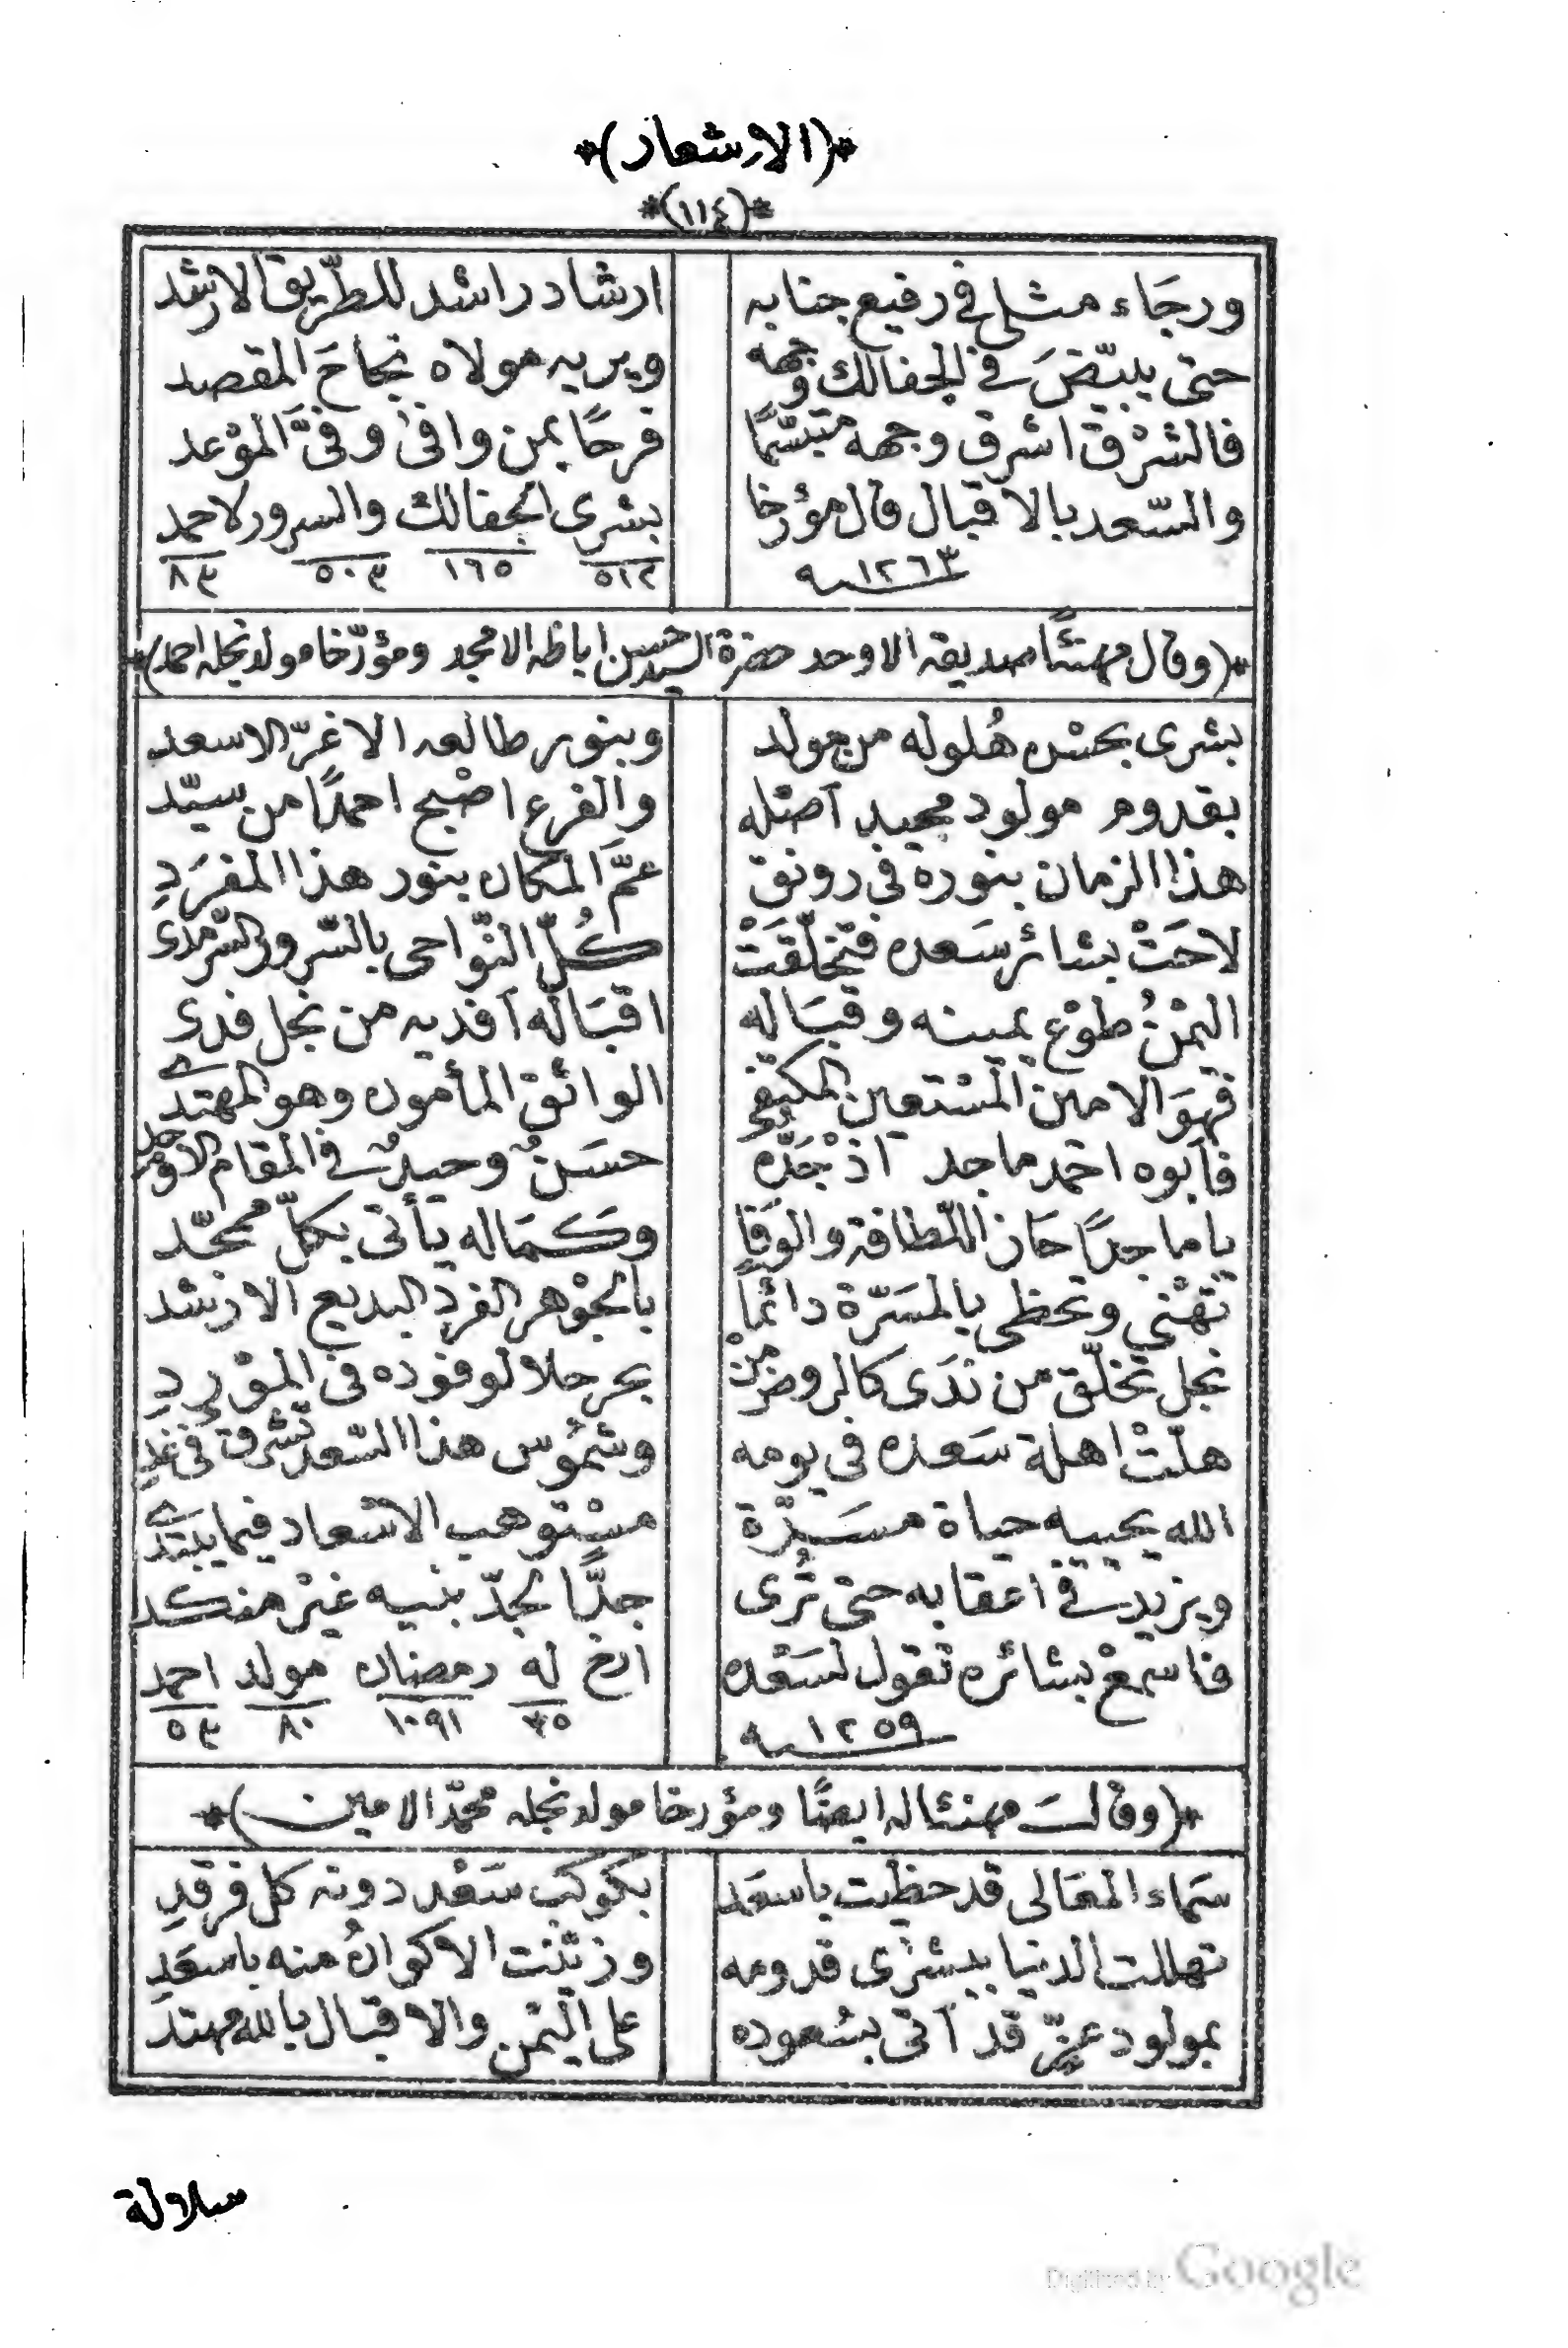 *(الاشعار)*
*(١١٤)*
ورجَاء مثلى فى رفيع جنابه ارشاد راشد للطّريق الارشد
حتى يبيّضَ فى الجفالك وجهه ويريه مولاه نجاحَ المقصد
فالشرْق اشرق وجهه متبسّمًا فرحًا بمن وافى وفىَّ الموْعد
والسّعد بالاقبال قال مؤرخا بشرى الجفالك والسرور لاحمد
١٢٦٣ سنه ٥١٢ ١٦٥ ٥٠٣ ٨٣
*(وقال مهنئًا صديقه الاوحد حضرة السيد حسن اباظه الامجد ومؤرّخا مولد نجله احمد)*
بشرى بحسْن هُلوله من مولد وبنور طالعه الاغرّ الاسعد
بقدوم مولود مجيد اصْله والفرع اصْبح احمدًا من سيّد
هذا الزمان بنوره فى رونق عمَّ المكان بنور هذا المفرَدِ
لاحَتْ بشائر سَعده فتخلّقَتْ كُلّ النّواحى بالسّرور السّرمدى
اليمْنُ طوْع يمينه وقبَاله اقبَاله افديه من نجل فدى
فهوَ الامين المسْتعين المكتفى الواثق المأمون وهو المهتدى
فابوه احمد ماجد اذْ جَدّه حسَنٌ وحيدٌ فى المقام الاوحد
يا ماجدًا حَاز اللّطافة والوَفا وكَمَاله يأتى بكلّ ممجّد
تهْنى وتحظى بالمسَرّة دائمًا بالجوْهر الفردِ البديع الارْشد
نجل تخلّق من ندَى كالروض منْ بحر حلا لوفوده فى الموْردِ
هلّتْ اهلة سَعده فى يومه وشمُوس هذا السّعد تشْرق فى غدِ
الله يحييه حياة مسَرّة مسْتوهب الاسْعاد فيما يبتدى
ويزيد فى اعقابه حتى تُرى جدًّا لجدّ بنيه غيْر منكد
فاسمعْ بشائره تقول لسَعْده ارخ له رمضان مولد احمد
١٢٥٩ سنه ٣٥ ١٠٩١ ٨٠ ٥٣
*(وقال مهنئا له ايضًا ومؤرخا مولد نجله محمّد الامين)*
سَماء المعَالى قد حظيت باسعَد بكوكب سَعْد دونه كل فرقدِ
تهللت الدنيا ببشرَى قدومه وزيّنت الاكوانُ منه باسعَدِ
بمولود عزّ قد اتى بسُعوده على اليمْن والاقبال بالله مهتد
سلالة
Digitized by Google